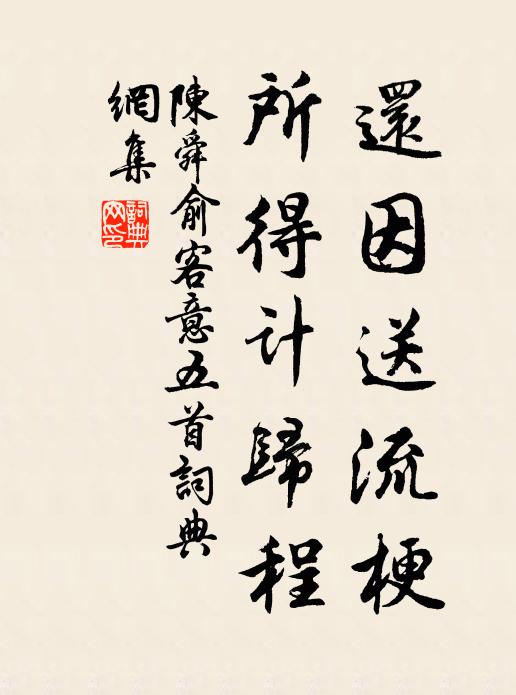 還因送流梗
所得計歸程
陳舜俞客意五首詞典
網集
詞典網印